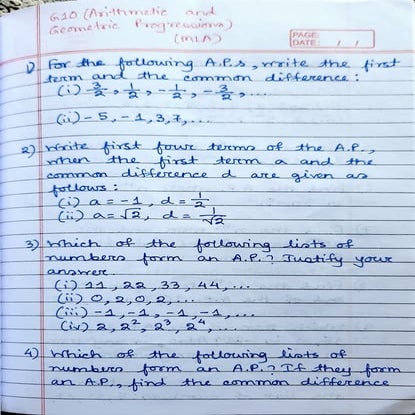 G10 (Arithmetic and
Geometric Progressions)
(MLA)
PAGE:
DATE: / /
1) For the following A.P.s, write the first
term and the common difference:
(i) 3/2, 1/2, -1/2, -3/2, ...
(ii) -5, -1, 3, 7, ...
2) Write first four terms of the A.P.,
when the first term a and the
common difference d are given as
follows:
(i) a = -1, d = 1/2
(ii) a = √2, d = 1/√2
3) Which of the following lists of
numbers form an A.P.? Justify your
answer.
(i) 11, 22, 33, 44, ...
(ii) 0, 2, 0, 2, ...
(iii) -1, -1, -1, -1, ...
(iv) 2, 2², 2³, 2⁴, ...
4) Which of the following lists of
numbers form an A.P.? If they form
an A.P., find the common difference